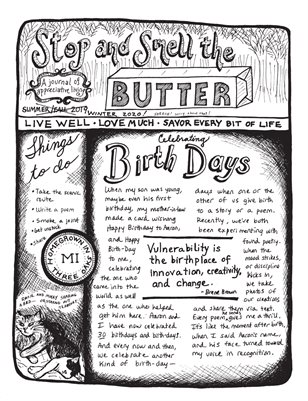 Stop and Smell the
BUTTER
A journal of
appreciative living
SUMMER/FALL 2019
WINTER 2020!
LIVE WELL • LOVE MUCH • SAVOR EVERY BIT OF LIFE
Things
to do
• Take the scenic
route
• Write a poem
• Smoke a joint
HOMEGROWN IN
MI
THREE OAKS
Celebrating
Birth Days
When my son was young,
maybe even his first
birthday, my mother-in-law
made a card, wishing
Happy Birthday to Aaron,
and Happy
Birth-Day
to me,
celebrating
the one who
came into the
world as well
as the one who helped
get him here. Aaron and
I have now celebrated
30 birthdays and birthdays.
And every now and then,
we celebrate another
kind of birth-day—
days when one or the
other of us give birth
to a story or a poem.
Recently, we've both
been experimenting with
found poetry.
When the
mood strikes,
or discipline
kicks in,
we take
photos of
our creations
and share them via text.
Every poem gives me a thrill.
It's like the moment after birth,
when I said Aaron's name,
and his face turned toward
my voice in recognition.
Vulnerability is
the birthplace of
innovation, creativity,
and change.
-Brené Brown